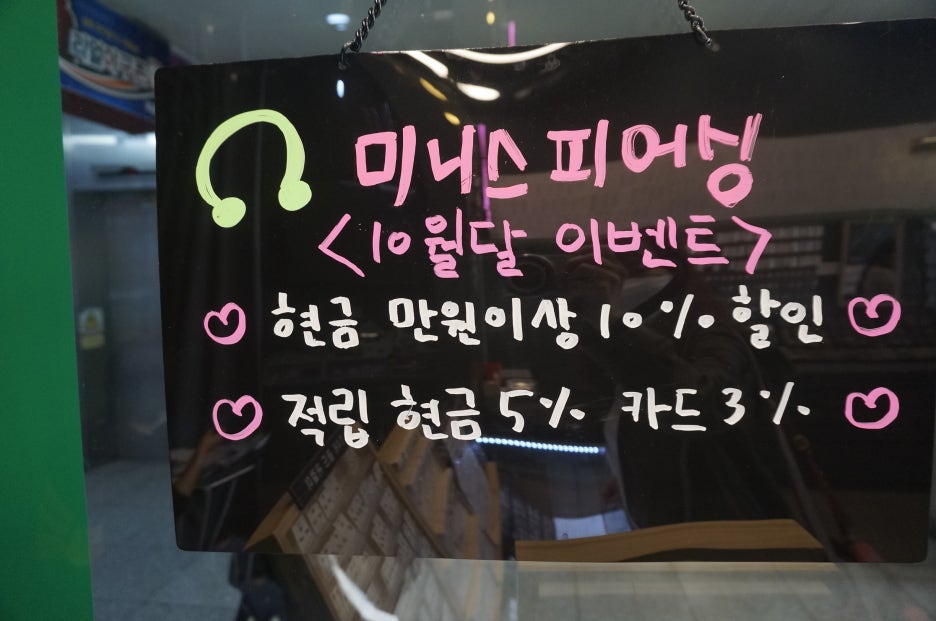 미니스피어싱
<10월달 이벤트>
현금 만원이상 10% 할인
적립 현금 5% 카드 3%